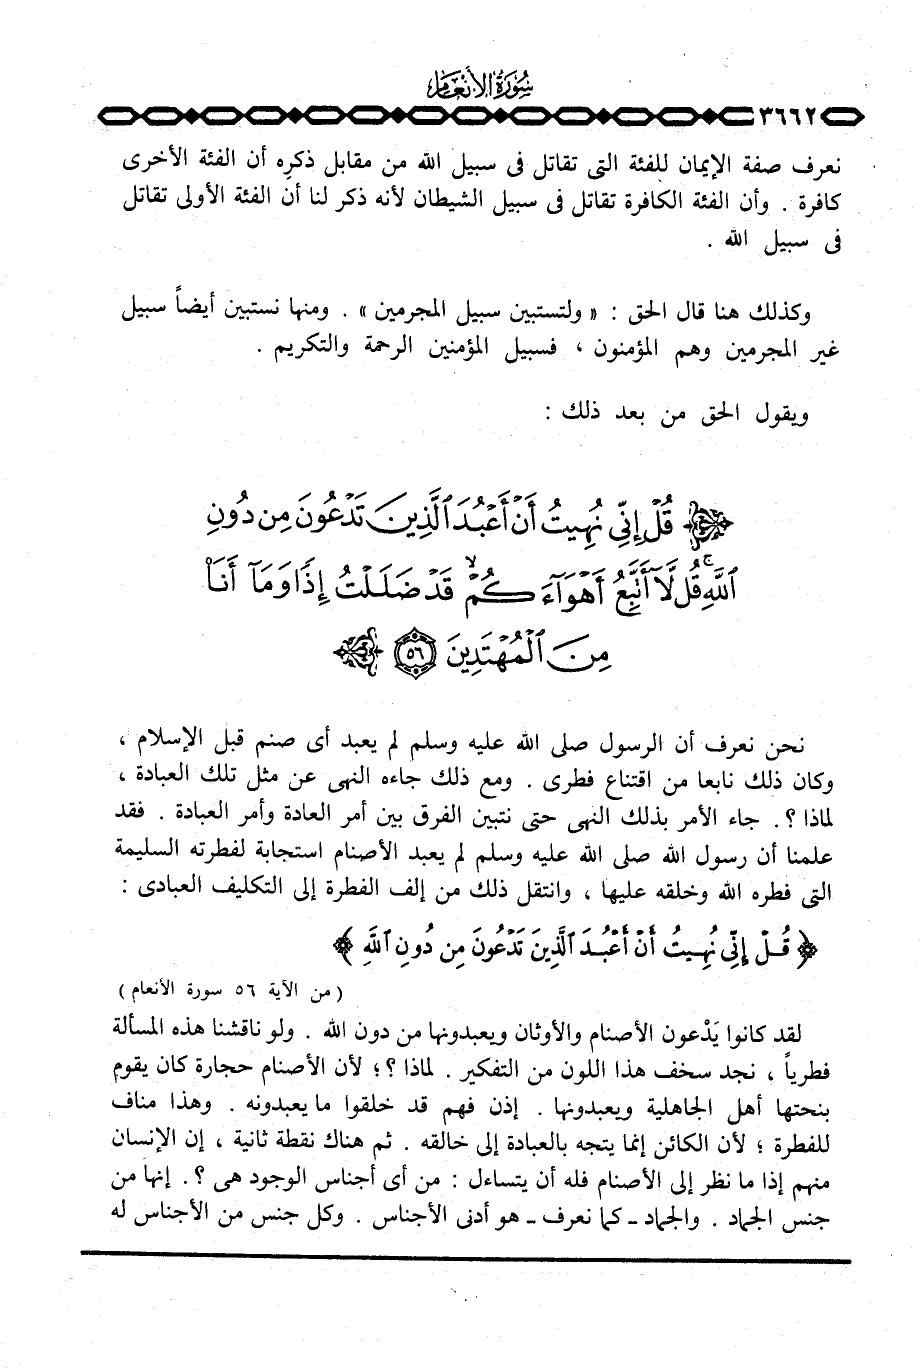 سُورَةُ الأَنْعَام
٣٦٦٢
نعرف صفة الإيمان للفئة التى تقاتل فى سبيل الله من مقابل ذكرِه أن الفئة الأخرى
كافرة . وأن الفئة الكافرة تقاتل فى سبيل الشيطان لأنه ذكر لنا أن الفئة الأولى تقاتل
فى سبيل الله .
وكذلك هنا قال الحق : « ولتستبين سبيل المجرمين » . ومنها نستبين أيضاً سبيل
غير المجرمين وهم المؤمنون ، فسبيل المؤمنين الرحمة والتكريم .
ويقول الحق من بعد ذلك :
قُلْ إِنِّي نُهِيتُ أَنْ أَعْبُدَ ٱلَّذِينَ تَدْعُونَ مِن دُونِ
ٱللَّهِ ۚ قُل لَّآ أَتَّبِعُ أَهْوَآءَكُمْ ۙ قَدْ ضَلَلْتُ إِذًا وَمَآ أَنَا۠
مِنَ ٱلْمُهْتَدِينَ ٥٦
نحن نعرف أن الرسول صلى الله عليه وسلم لم يعبد أى صنم قبل الإسلام ،
وكان ذلك نابعا من اقتناع فطرى . ومع ذلك جاءه النهى عن مثل تلك العبادة ،
لماذا ؟. جاء الأمر بذلك النهى حتى نتبين الفرق بين أمر العادة وأمر العبادة . فقد
علمنا أن رسول الله صلى الله عليه وسلم لم يعبد الأصنام استجابة لفطرته السليمة
التى فطره الله وخلقه عليها ، وانتقل ذلك من إلف الفطرة إلى التكليف العبادى :
﴿ قُلْ إِنِّي نُهِيتُ أَنْ أَعْبُدَ ٱلَّذِينَ تَدْعُونَ مِن دُونِ ٱللَّهِ ﴾
( من الآية ٥٦ سورة الأنعام )
لقد كانوا يَدْعون الأصنام والأوثان ويعبدونها من دون الله . ولو ناقشنا هذه المسألة
فطرياً ، نجد سخف هذا اللون من التفكير . لماذا ؟؛ لأن الأصنام حجارة كان يقوم
بنحتها أهل الجاهلية ويعبدونها . إذن فهم قد خلقوا ما يعبدونه . وهذا مناف
للفطرة ؛ لأن الكائن إنما يتجه بالعبادة إلى خالقه . ثم هناك نقطة ثانية ، إن الإنسان
منهم إذا ما نظر إلى الأصنام فله أن يتساءل : من أى أجناس الوجود هى ؟. إنها من
جنس الجماد . والجماد ـ كما نعرف ـ هو أدنى الأجناس . وكل جنس من الأجناس له